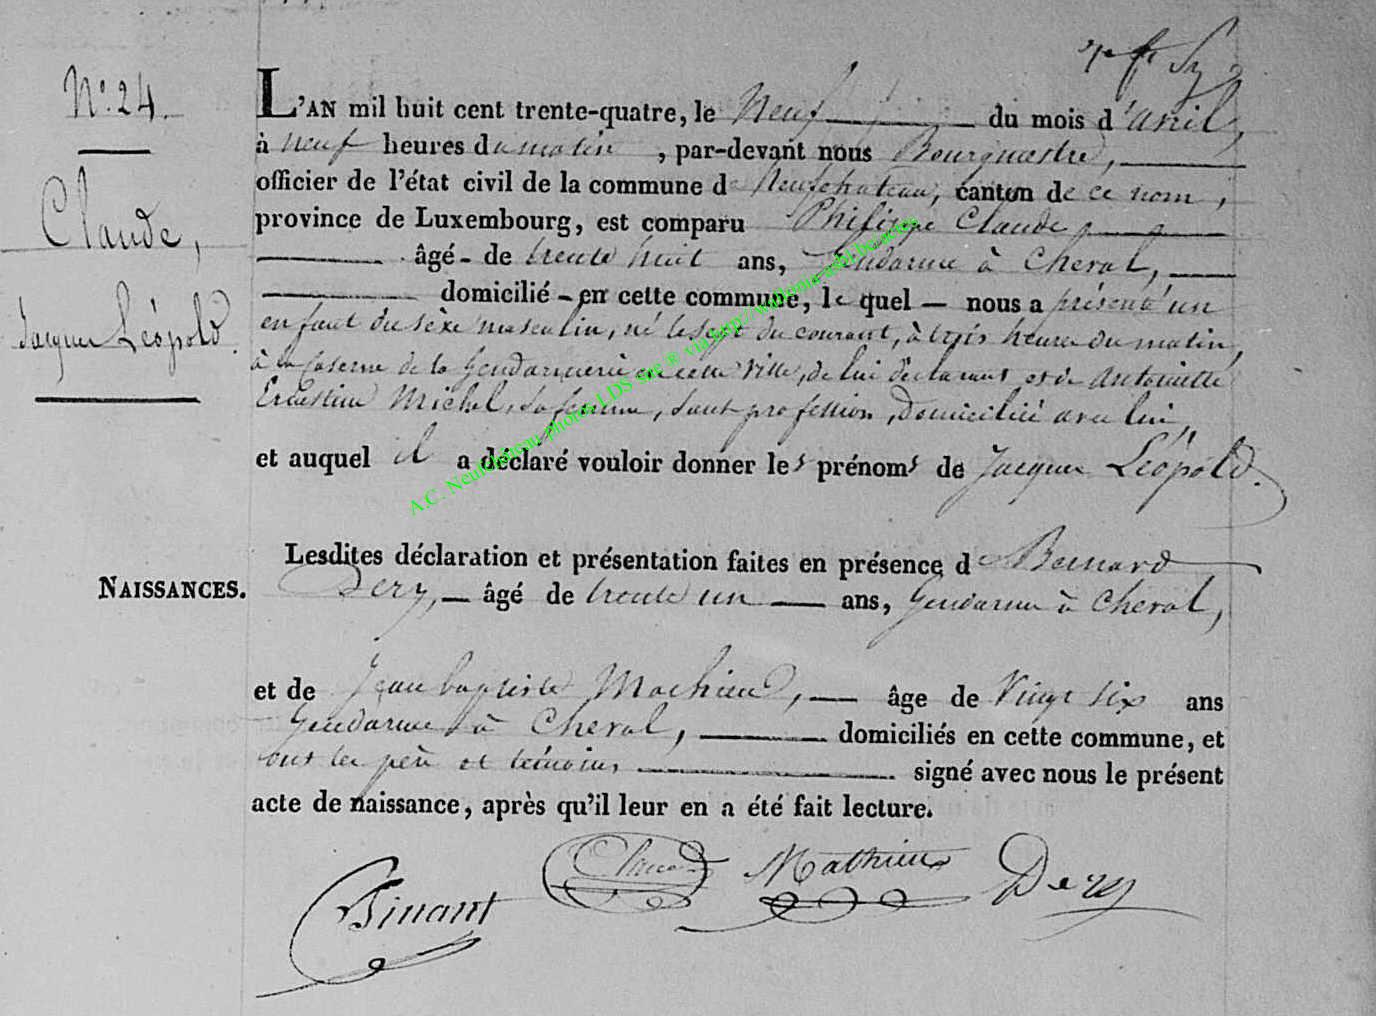 N° 24.
Claude,
Jacques Léopold.
NAISSANCES.
L'AN mil huit cent trente-quatre, le Neuf du mois d'avril,
à neuf heures du matin, par-devant nous Bourgmestre,
officier de l'état civil de la commune de Neufchateau, canton de ce nom,
province de Luxembourg, est comparu Philippe Claude,
âgé de trente huit ans, Gendarme à Cheval,
domicilié en cette commune, le quel nous a présenté un
enfant du sèxe masculin, né le sept du courant, à trois heures du matin,
à la Caserne de la Gendarmerie en cette Ville, de lui déclarant et de Antoinette
Ernestine Michel, sa femme, sans profession, domiciliée avec lui,
et auquel il a déclaré vouloir donner les prénoms de Jacques Léopold.
Lesdites déclaration et présentation faites en présence de Bernard
Dery, âgé de trente un ans, Gendarme à Cheval,
et de Jean baptiste Mathieu, âge de Vingt six ans
Gendarme à Cheval, domiciliés en cette commune, et
ont les père et témoins signé avec nous le présent
acte de naissance, après qu'il leur en a été fait lecture.
Claude Mathieu Dery
Binant
A.C. Neufchâteau photos LDS site ® via http://wallonia-asbl.be/actes